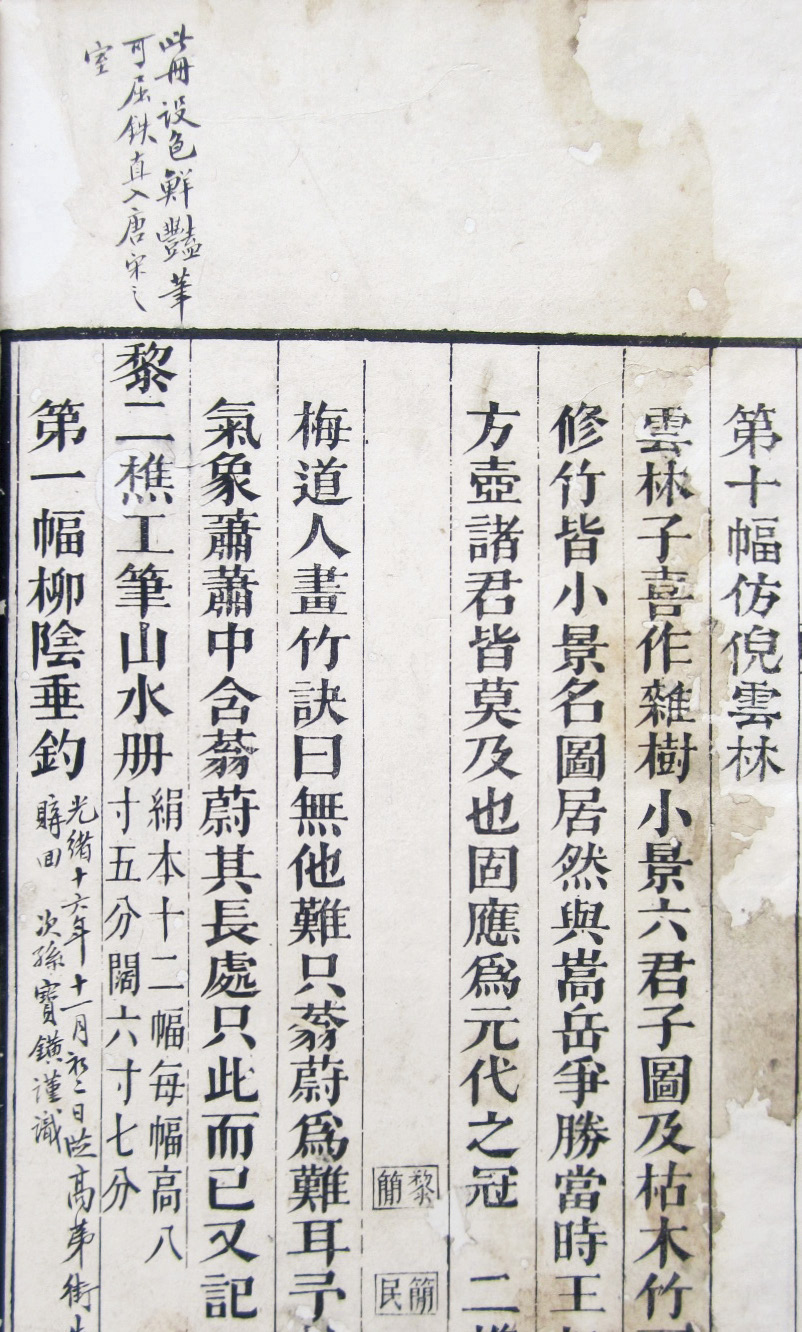 第十幅仿倪雲林
雲林子喜作雜樹小景六君子圖及枯木竹
修竹皆小景名圖居然與嵩岳爭勝當時王
方壺諸君皆莫及也固應爲元代之冠 二樵
黎簡
簡民
梅道人畫竹訣曰無他難只蓊蔚爲難耳予
氣象蕭蕭中含蓊蔚其長處只此而已又記
黎二樵工筆山水册
絹本十二幅每幅高八
寸五分闊六寸七分
第一幅柳陰垂釣
光緒十六年十一月初二日
高第街
購回 次孫寶鐄謹識
此册设色鮮豔筆
可屈鉄直入唐宋之
室